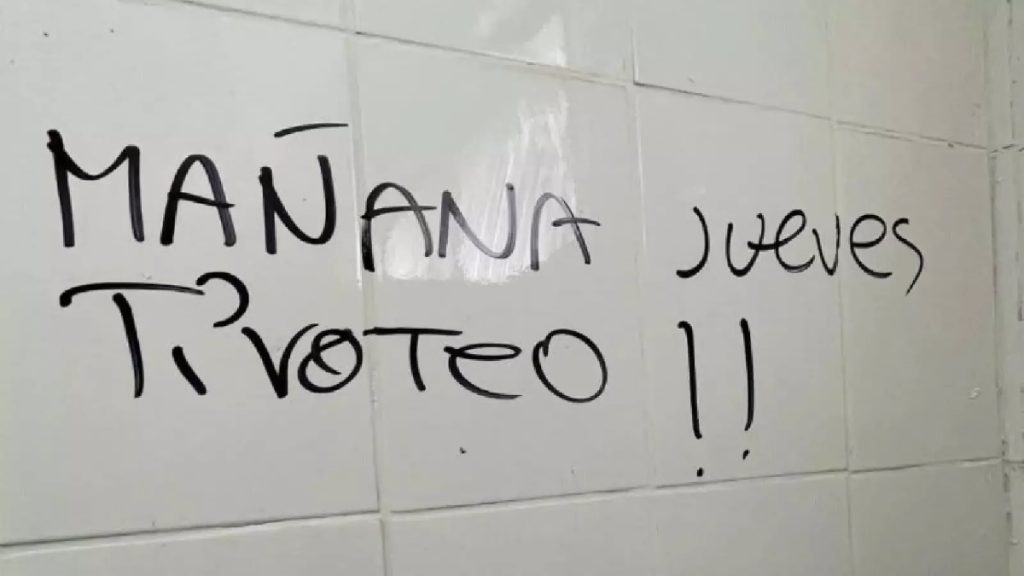 MAÑANA Jueves
Tivoteo !!